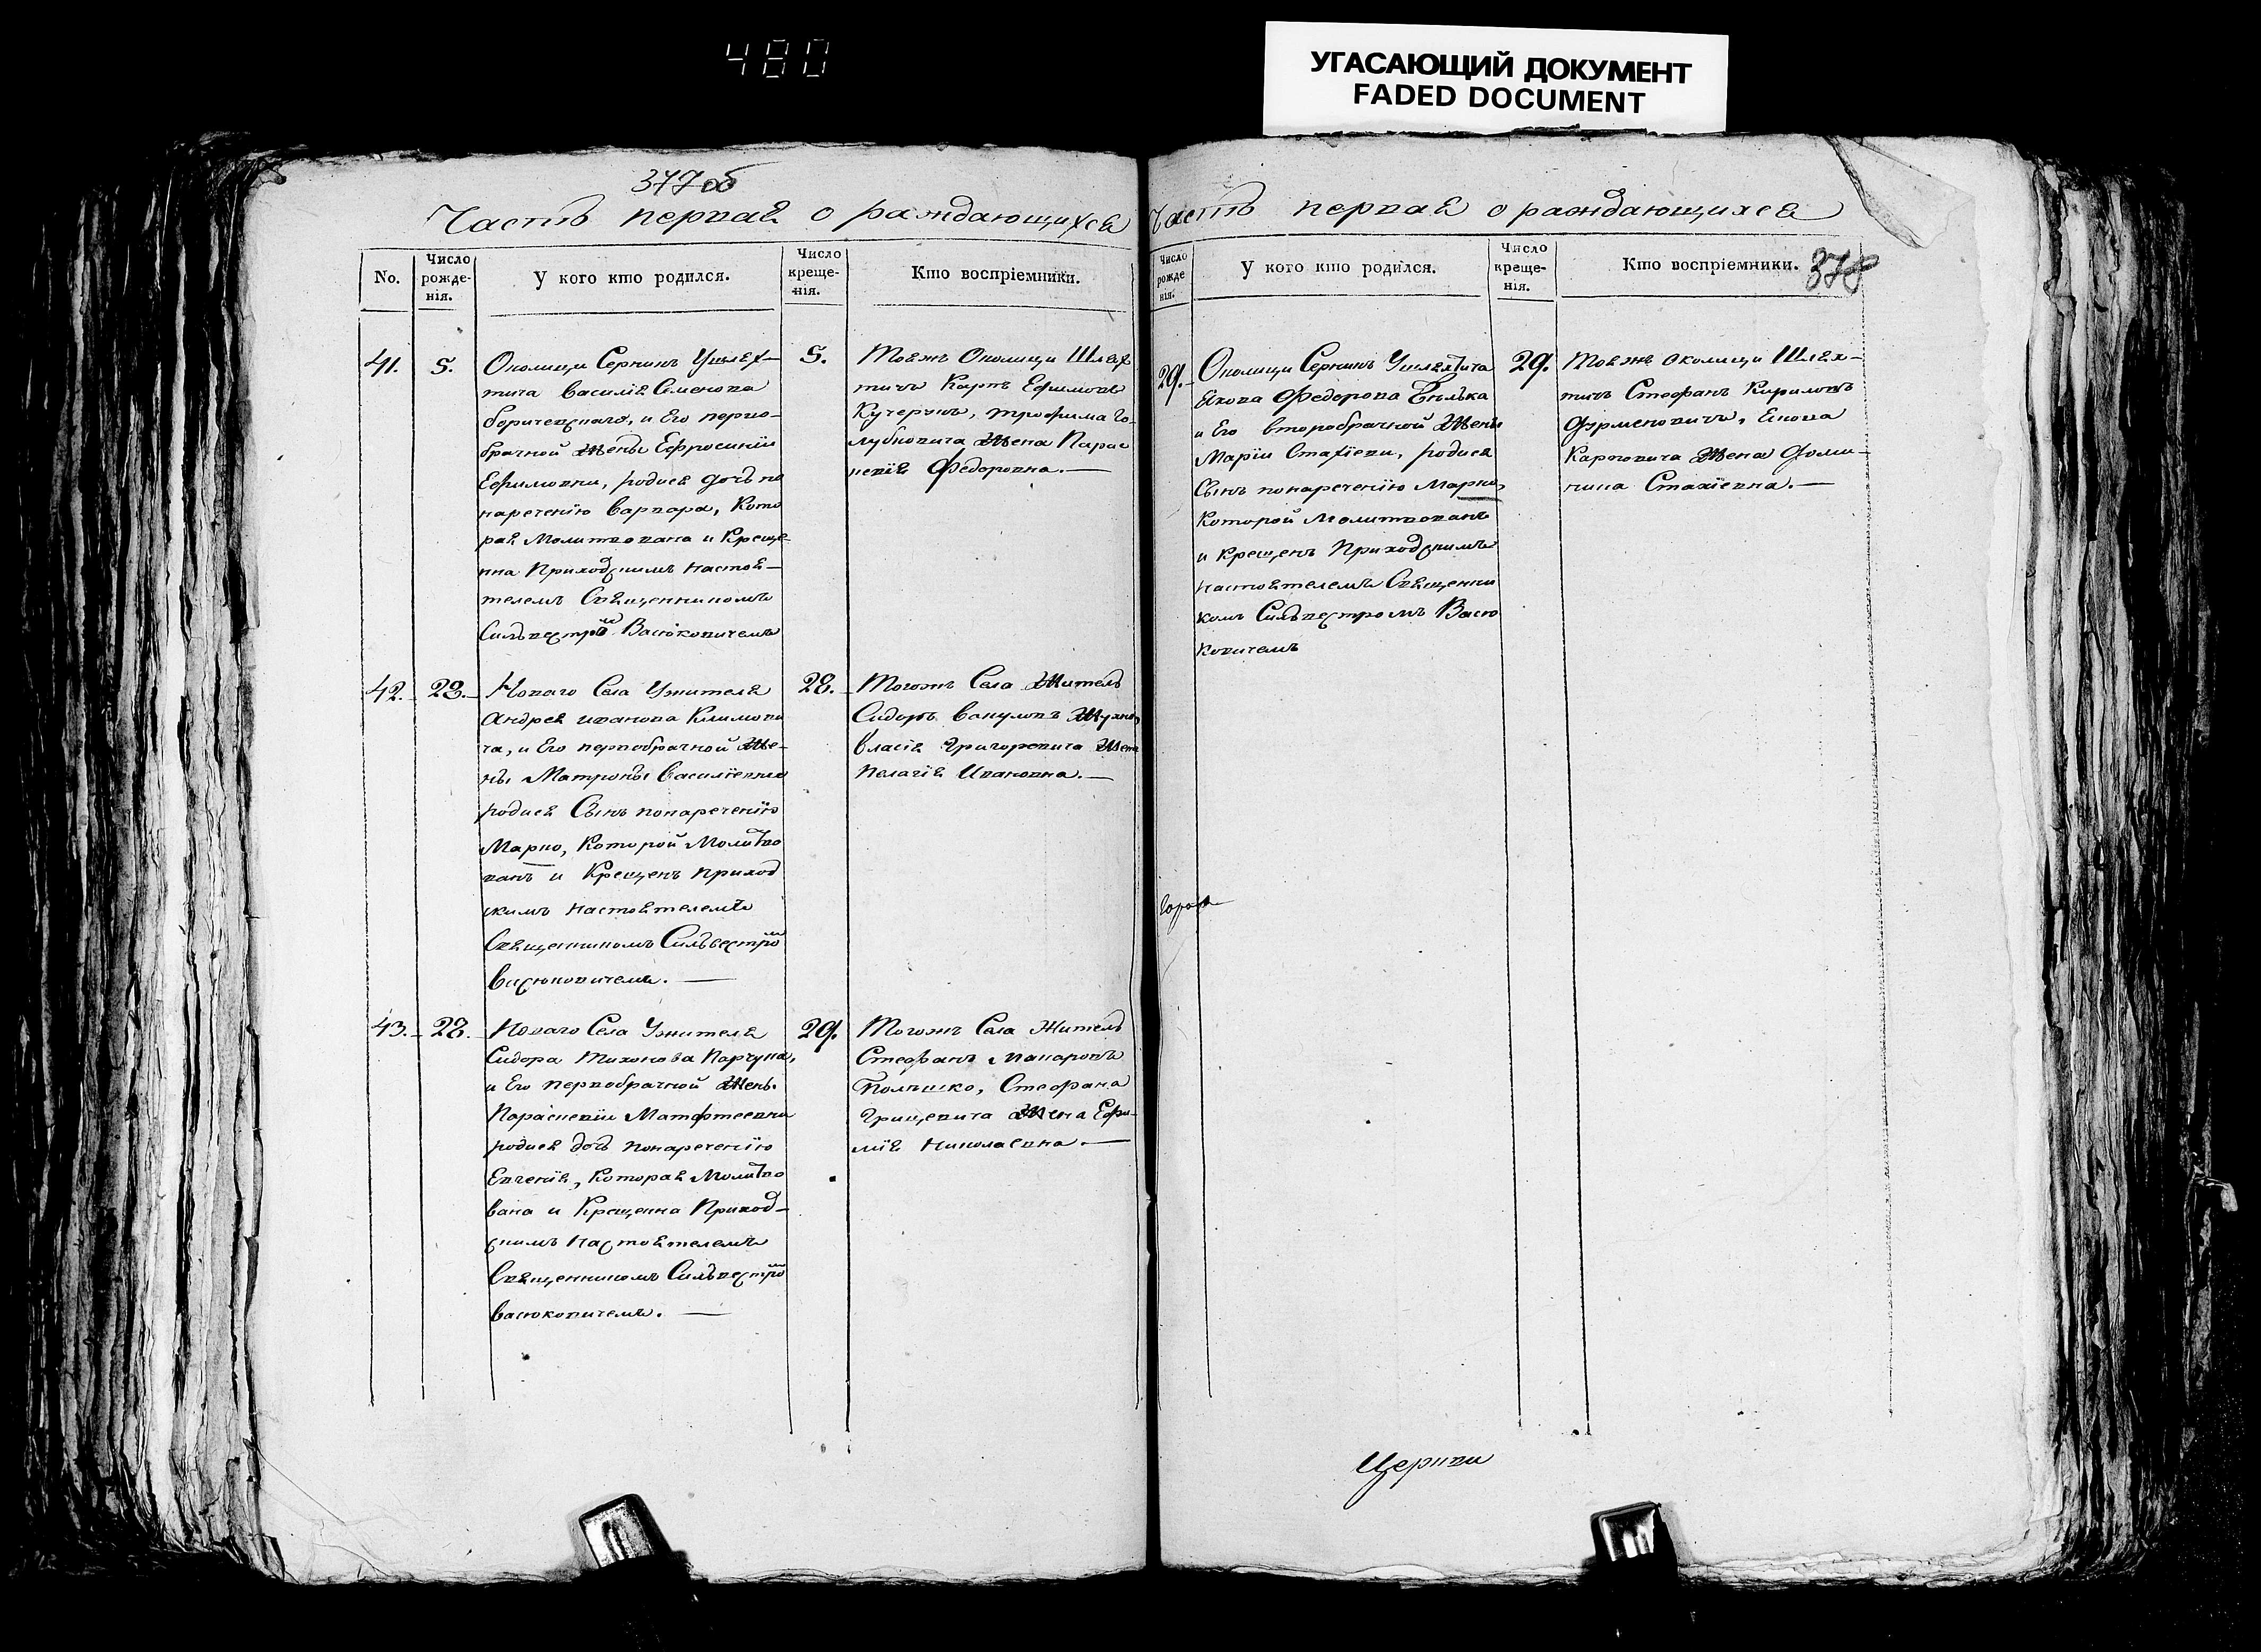 480
УГАСАЮЩИЙ ДОКУМЕНТ
FADED DOCUMENT
377об
Часть первая о раждающихся
No.
Число рожде-нія.
У кого кто родился.
Число креще-нія.
Кто воспріемники.
41.
5.
Околици Серкинъ Ушлях-
тича Василія Семенова
и Его перво-
брачной Жены Ефросиніи
Ефимовны, родися дочь по
нареченію Варвара, Кото
рая Молитвована и Креще-
нна Приходскимъ настоя-
телемъ Священникомъ
Сильвестромъ Васюковичемъ
5.
Тояжъ Околици Шлях
тичъ Карпъ Ефимовъ
Кучерукъ, трофима Го-
лубовича Жена Парас
кевія Федоровна.—
42.
28.
Новаго Села Ужителя
Андрея иванова Климови
ча, и Его первобрачной Же-
ны Матроны Василіевны
родися Сынъ понареченію
Марко, Которой Молитво
ванъ и Крещенъ приход
скимъ настоятелемъ
Священникомъ Сильвестромъ
васюковичемъ.—
28.
Тогожъ Села Житель
Сидоръ вакуловъ
власія Григоревича Жена
Пелагія Ивановна.—
43.
28.
Новаго Села Ужителя
Сидора Тихонова
и Его первобрачной Жены
Параскевіи Матфтеевны
родися дочь понареченію
Евгенія, Которая Молитво
вана и Крещенна Приход-
скимъ настоятелемъ
Священникомъ Сильвестромъ
васюковичемъ.—
29.
Тогожъ Села Житель
Стефанъ Макаровъ
Стефана
Грицевича Жена Ефи-
мія Николаевна.—
Часть первая о раждающихся
Число рожде нія.
У кого кто родился.
Число креще-нія.
Кто воспріемники.
378
29.
Околици Серкинъ Ушляхтича
Якова Федорова
и Его второбрачной Жены
Маріи Стахіеви, родися
Сынъ понареченію Марко,
Которой Молитвованъ
и Крещенъ Приходскимъ
настоятелемъ Священни
комъ Сильвестромъ Васю
ковичемъ
29.
Тояжъ околици Шлях-
тичъ Стефанъ Кириловъ
Фурменовичъ, Якова
Карповича Жена Доми-
кика Стахіевна.—
Церкви